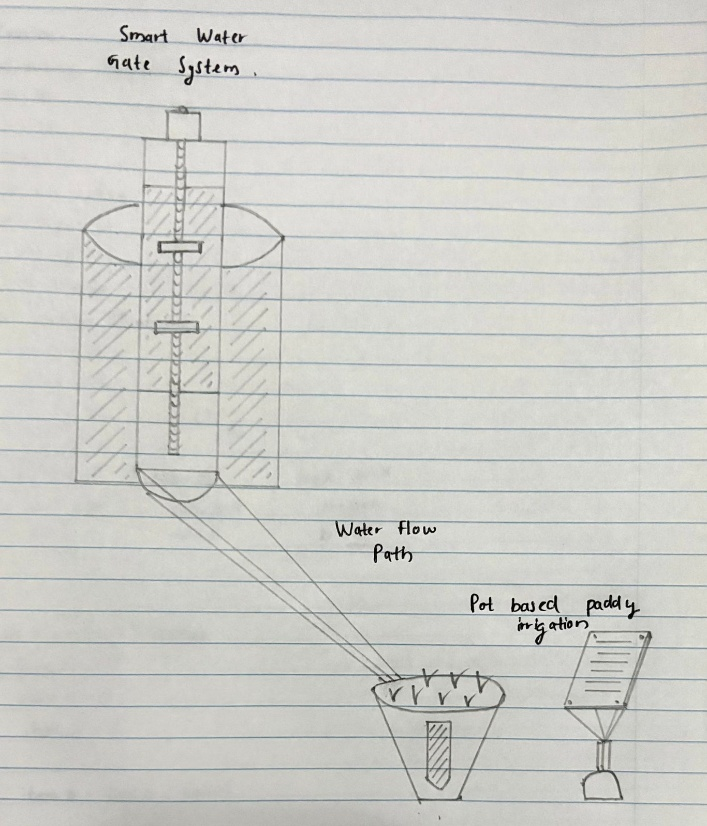 Smart Water
Gate System.
Water flow
Path
Pot based paddy
irrigation